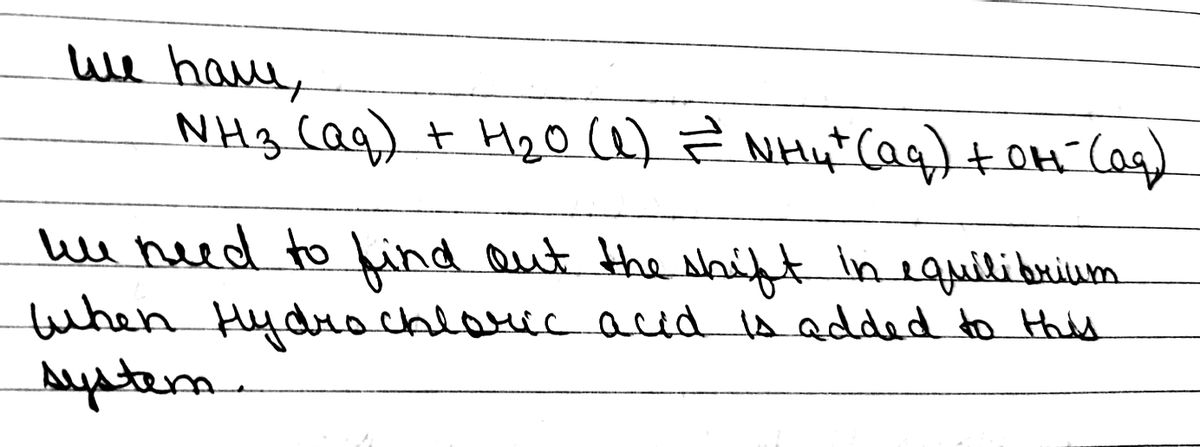 We have,
NH3 (aq) + H2O (l) ⇌ NH4+ (aq) + OH- (aq)
We need to find out the shift in equilibrium
when Hydrochloric acid is added to this
system.